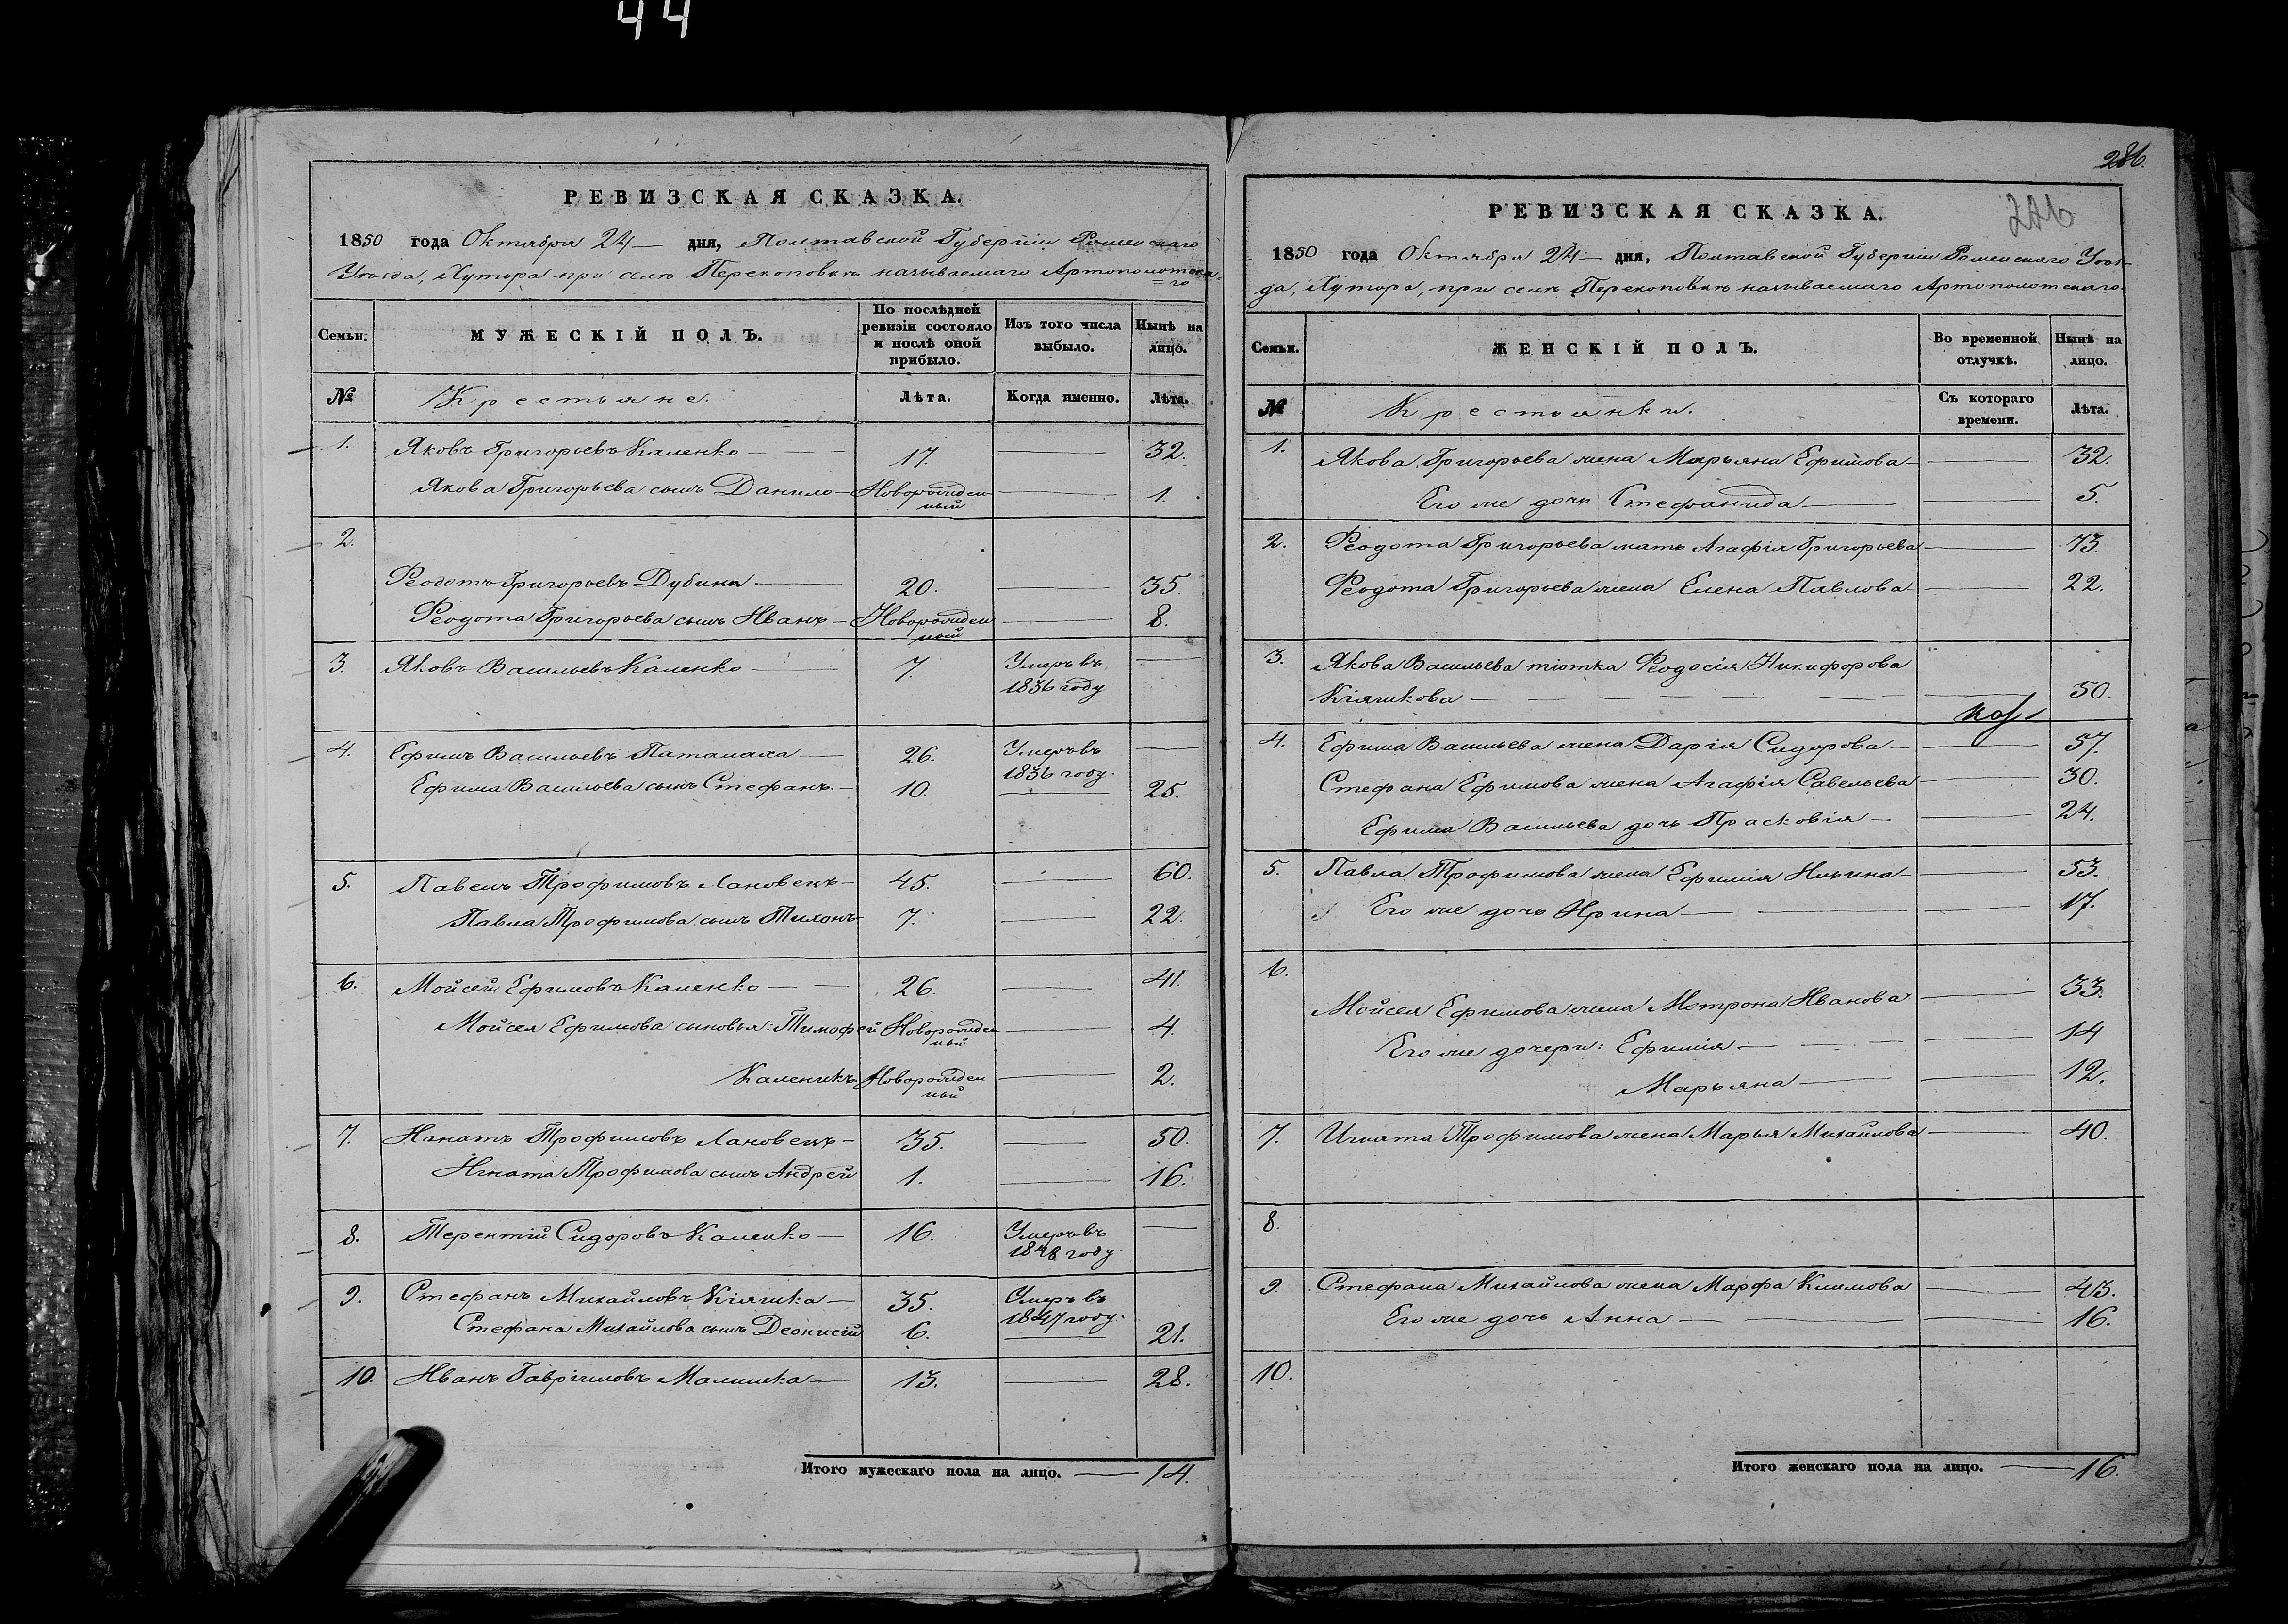 44
РЕВИЗСКАЯ СКАЗКА.
1850 года Октября 24 дня, Полтавской Губерніи Роменскаго
Уѣзда, Хутора при селѣ Перекоповкѣ называемаго Артополотска-
го
Семьи. МУЖЕСКІЙ ПОЛЪ. По послѣдней ревизіи состояло и послѣ оной прибыло. Изъ того числа выбыло. Нынѣ на лицо.
№ Крестьяне. Лѣта. Когда именно. Лѣта.
1. Яковъ Григорьевъ Каленко — 17. — 32.
Якова Григорьева сынъ Данило — Новорожденный — 1.
2.
Ѳеодотъ Григорьевъ Дубина — 20. — 35.
Ѳеодота Григорьева сынъ Иванъ — Новорожденный — 8.
3. Яковъ Васильевъ Каленко — 7. Умеръ въ 1836 году —
4. Ефимъ Васильевъ Паталаха — 26. Умеръ въ 1836 году. —
Ефима Васильева сынъ Стефанъ. — 10. — 25.
5. Павелъ Трофимовъ Лановекъ — 45. — 60.
Павла Трофимова сынъ Тихонъ — 7. — 22.
6. Мойсей Ефимовъ Каленко — 26. — 41.
Мойсея Ефимова сыновья: Тимофей Новорожденный — 4.
Каленикъ Новорожденный — 2.
7. Игнатъ Трофимовъ Лановекъ — 35. — 50.
Игната Трофимова сынъ Андрей 1. — 16.
8. Терентій Сидоровъ Каленко — 16. Умеръ въ 1848 году. —
9. Стефанъ Михайловъ Кіяшка — 35. Умеръ въ 1847 году.
Стефана Михайлова сынъ Деонисій 6. — 21.
10. Иванъ Гавріиловъ Малишка — 13. — 28.
Итого мужескаго пола на лицо. — 14.
286.
РЕВИЗСКАЯ СКАЗКА.
1850 года Октября 24 дня, Полтавской Губерніи Роменскаго Уѣз-
да, Хутора, при селѣ Перекоповкѣ называемаго Артополотскаго
Семьи. ЖЕНСКІЙ ПОЛЪ. Во временной отлучкѣ. Нынѣ на лицо.
№ Крестьянки. Съ котораго времени. Лѣта.
1. Якова Григорьева жена Марьяна Ефимова — 32.
Его же дочь Стефанида — 5.
2. Ѳеодота Григорьева мать Агафія Григорьева — 73.
Ѳеодота Григорьева жена Елена Павлова — 22.
3. Якова Васильева тіотка Ѳеодосія Никифорова
Кіяшкова — 50.
4. Ефима Васильева жена Дарія Сидорова — 57.
Стефана Ефимова жена Агафія Савельева — 30.
Ефима Васильева дочь Прасковія — 24.
5. Павла Трофимова жена Ефимія Никина — 53.
Его же дочь Ирина — 17.
6.
Мойсея Ефимова жена Мотрона Иванова — 33.
Его же дочери: Ефимія — 14
Марьяна — 12.
7. Игната Трофимова жена Марья Михайлова — 40.
8.
9. Стефана Михайлова жена Марфа Климова — 43.
Его же дочь Анна — 16.
10.
Итого женскаго пола на лицо. — 16.